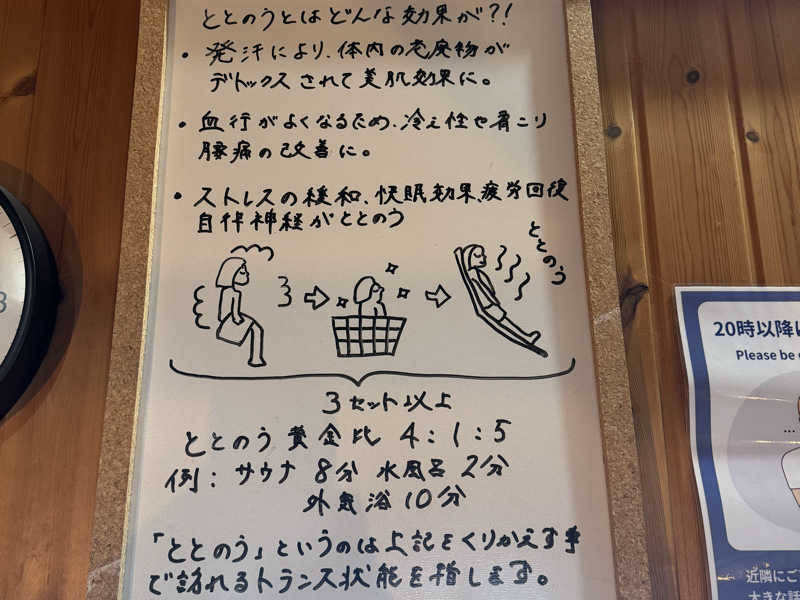 ととのうとはどんな効果が?!
・発汗により、体内の老廃物が
デトックスされて美肌効果に。
・血行がよくなるため、冷え性や肩こり
腰痛の改善に。
・ストレスの緩和、快眠効果、疲労回復
自律神経がととのう
ととのう
3セット以上
ととのう黄金比 4:1:5
例:サウナ 8分 水風呂 2分
外気浴 10分
「ととのう」というのは上記をくりかえす事
で訪れるトランス状態を指します。
3
20時以降
Please be
近隣にご
大きな話